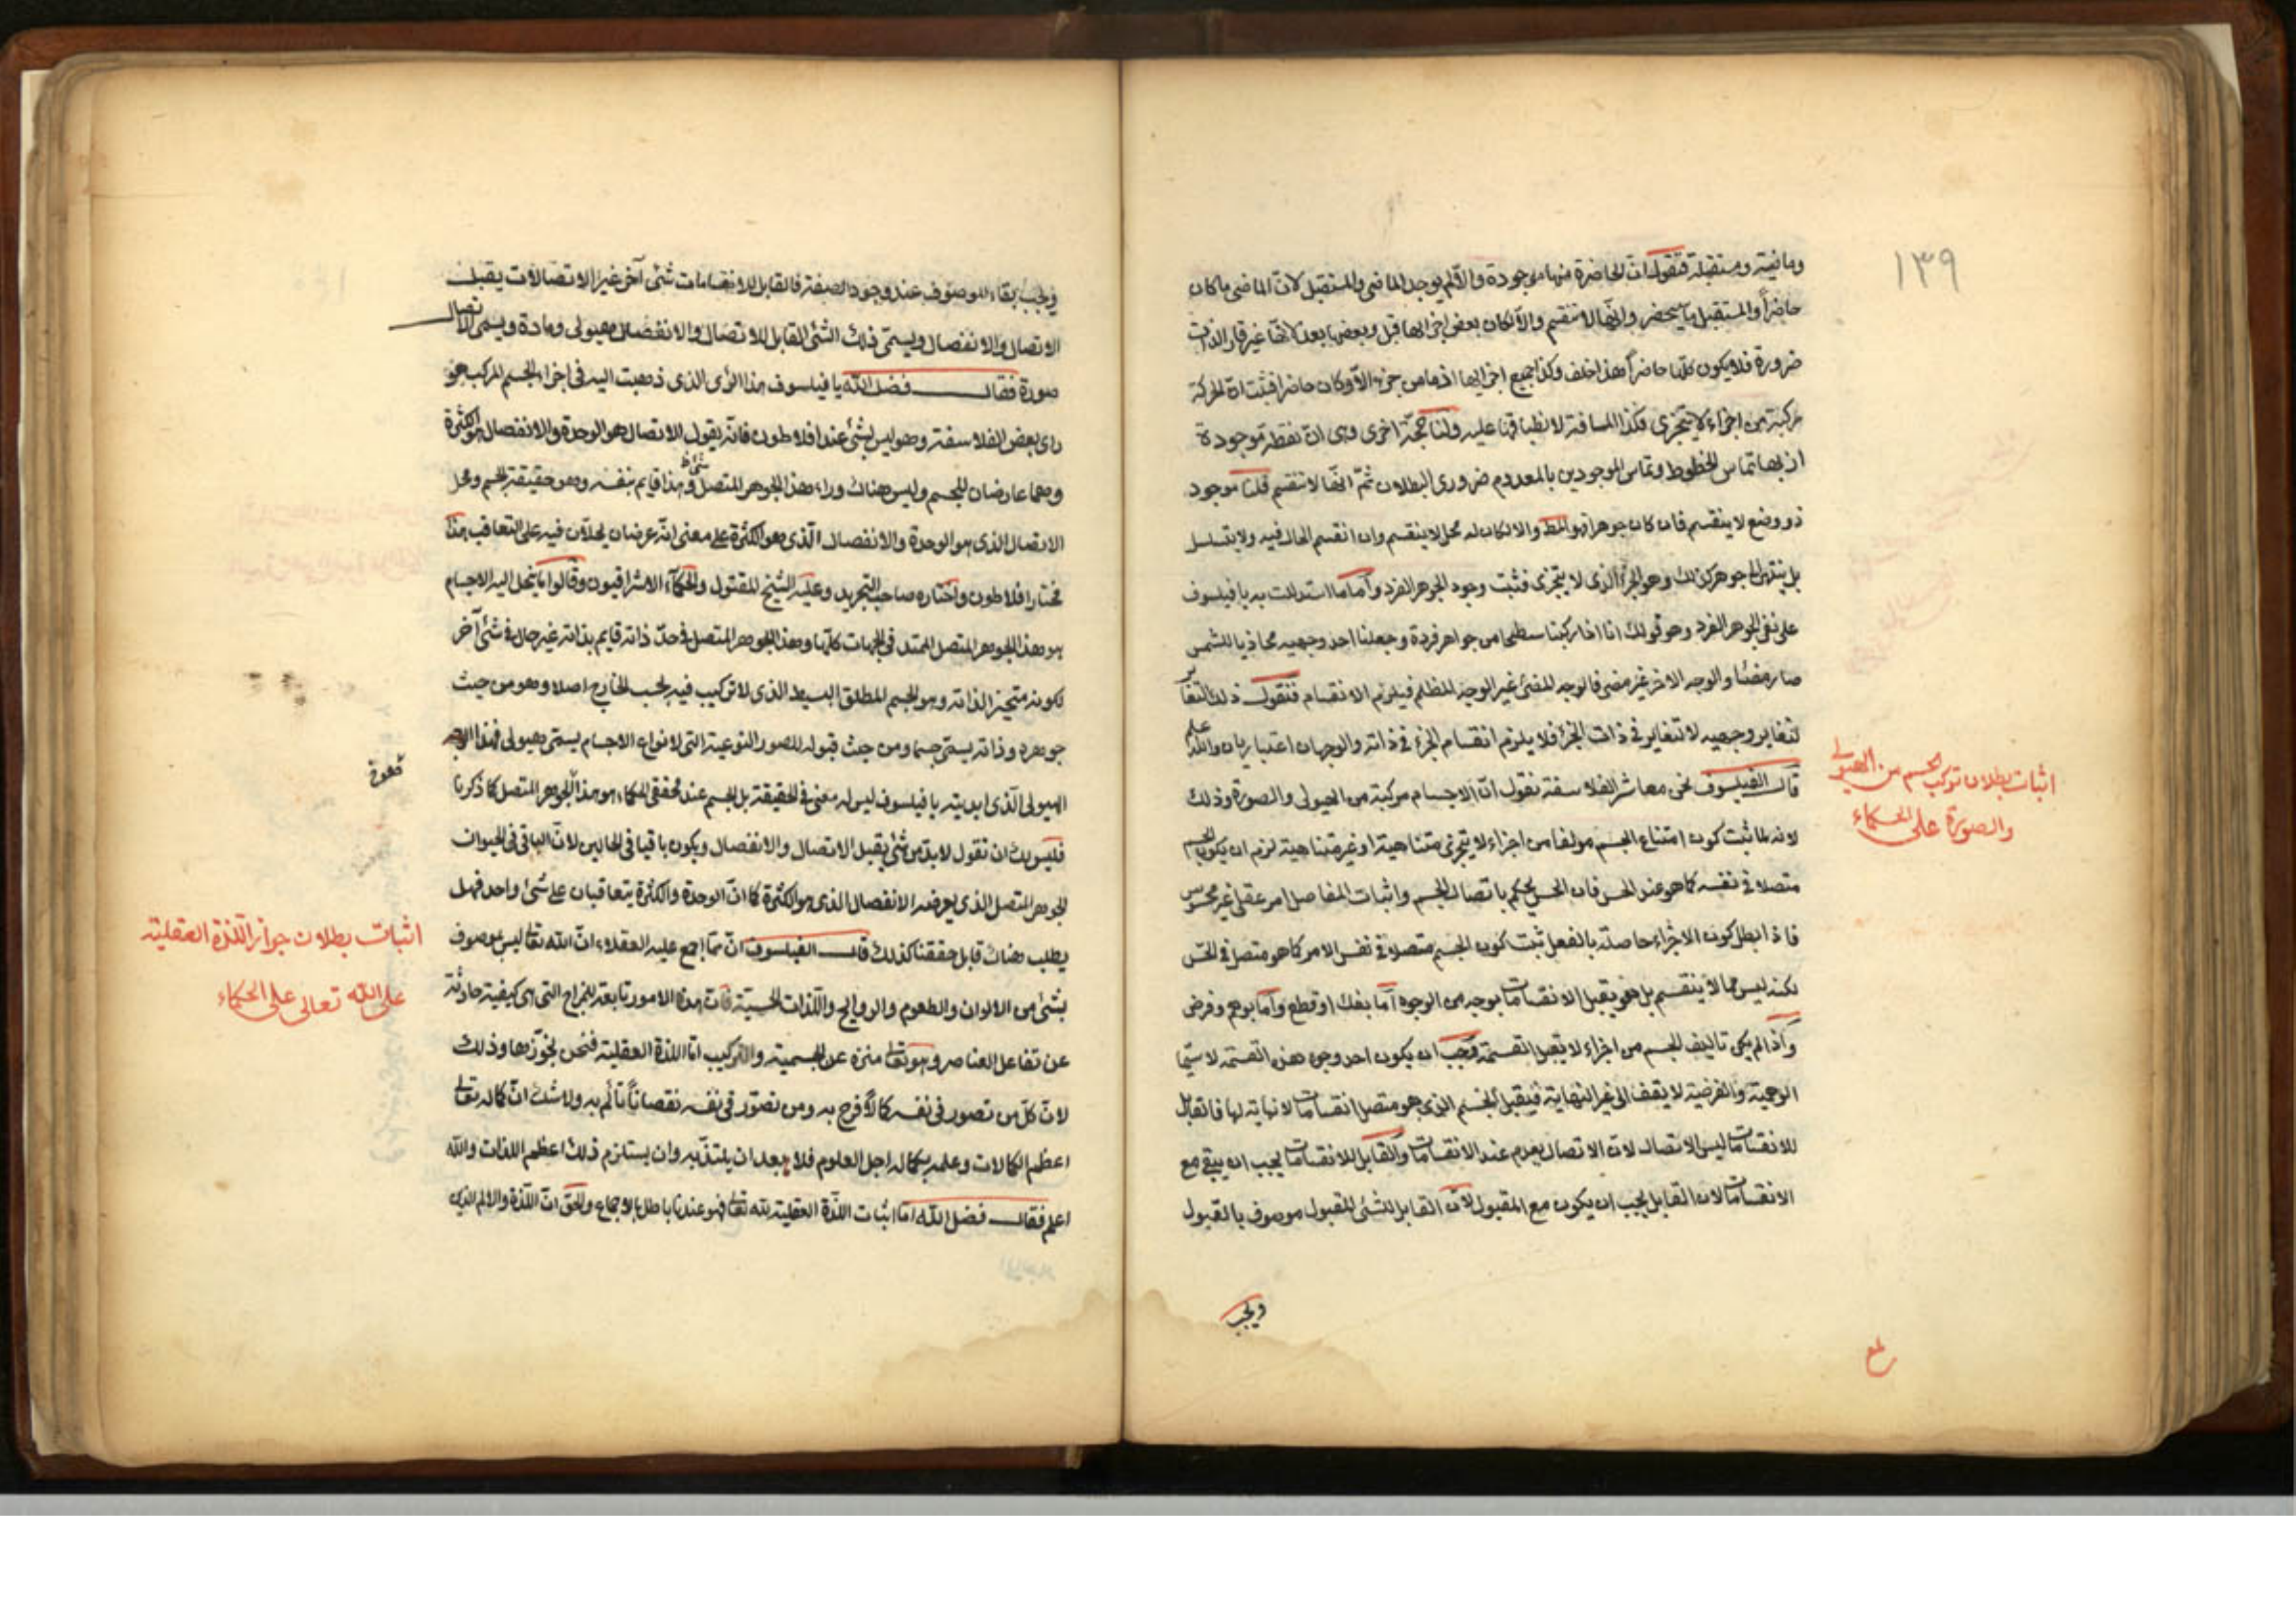 ١٣٩
وماضية ومستقبلة فنقول ان الحاضرة منها موجودة والا لم يوجد الماضى والمستقبل لان الماضى ما كان
حاضراً والمستقبل ما سيحضر وانها لا تنقسم والا لكان بعض اجزائها قبل وبعضها بعد لانها غير قار الذات
ضرورة فلا يكون كلها حاضراً هذا خلف وكذا جميع اجزائها اذ ما من جزء الا وكان حاضرا فثبت ان الحركة
مركبة من اجزاء لا يتجزى فكذا المسافة لانطباقها عليه ولنا حجة اخرى وهى ان نقطة موجودة
اذ بها تماس الخطوط وتماس الموجودين بالمعدوم ضرورى البطلان ثم انها لا تنقسم قلنا موجود
ذو وضع لا ينقسم فان كان جوهرا فهو المط والا لكان له محل لا ينقسم وان انقسم الحال فيه ولا يتسلسل
بل ينتهى الى جوهر كذلك وهو الجزء الذى لا يتجزى فثبت وجود الجوهر الفرد وأما ما استدللت به يا فيلسوف
على نفى الجوهر الفرد وهو قولك انا اذا ركبنا سطحا من جواهر فردة وجعلنا احد وجهيه محاذيا للشمس
صار مضئا والوجه الاخر غير مضى فالوجه المضئ غير الوجه المظلم فيلزم الانقسام فنقول ذلك التغاير
لتغاير وجهيه لا لتغاير فى ذات الجزء فلا يلزم انقسام الجزء فى ذاته والوجهان اعتباريان والله اعلم
قال الفيلسوف نحن معاشر الفلاسفة نقول ان الاجسام مركبة من الهيولى والصورة وذلك
لانه لما ثبت كون امتناع الجسم مولفا من اجزاء لا يتجزى متناهية او غير متناهية لزم ان يكون الجسم
متصلا فى نفسه كما هو عند الحس فان الحس يحكم باتصال الجسم واثبات المفاصل امر عقلى غير محسوس
فاذا بطل كون الاجزاء حاصلة بالفعل ثبت كون الجسم متصلا فى نفس الامر كما هو متصل فى الحس
لكنه ليس مما لا ينقسم بل هو يقبل الانقسامات بوجه من الوجوه أما بفك او قطع وأما بوهم وفرض
وأذا لم يكن تاليف الجسم من اجزاء لا يقبل القسمة فيجب ان يكون احد وجوه هذه القسمة لا سيما
الوهمية والفرضية لا يقف الى غير النهاية فيقبل الجسم الذى هو متصل انقسامات لا نهاية لها فالقابل
للانقسامات ليس الاتصال لان الاتصال يعدم عند الانقسامات والقابل للانقسامات يجب ان يبقى مع
الانقسامات لان القابل يجب ان يكون مع المقبول لان القابل للشئ المقبول موصوف بالقبول
ويجب
اثبات بطلان تركب الجسم من الهيولى
والصورة على الحكماء
ويجب بقاء الموصوف عند وجود الصفة فالقابل للانقسامات شئ آخر غير الاتصالات يقبل
الاتصال والانفصال ويسمى ذلك الشئ القابل للاتصال والانفصال هيولى ومادة ويسمى الاتصال
صورة فقال فضل الله يا فيلسوف هذا الرأى الذى ذهبت اليه فى اجزاء الجسم المركب هو
راى بعض الفلاسفة وهو ليس بشئ عند افلاطون فانه يقول الاتصال هو الوحدة والانفصال هو الكثرة
وهما عارضان للجسم وليس هناك وراء هذا الجوهر المتصل شئ وهذا قايم بنفسه وهو حقيقة الجسم ومحل
الاتصال الذى هو الوحدة والانفصال الذى هو الكثرة على معنى انه عرضان يحلان فيه على التعاقب هذا
مختار افلاطون واختاره صاحب التجريد وعليه الشيخ المقتول والحكماء الاشراقيون وقالوا ما ينحل اليه الاجسام
هو هذا الجوهر المتصل الممتد فى الجهات كلها وهذا الجوهر المتصل فى حد ذاته قايم بذاته غير حال فى شئ آخر
لكونه متحيزا لذاته وهو الجسم المطلق البسيط الذى لا تركيب فيه بحسب الخارج اصلا وهو من حيث
جوهره وذاته يسمى جسما ومن حيث قبوله للصور النوعية التى لانواع الاجسام يسمى هيولى فهذا الوجه
الهيولى الذى ابديته يا فيلسوف ليس له معنى فى الحقيقة بل الجسم عند محققى الحكماء هو هذا الجوهر المتصل كما ذكرنا
فليس لك ان تقول لا بد من شئ يقبل الاتصال والانفصال ويكون باقيا فى الحالين لان الباقى فى الحيوان
الجوهر المتصل الذى يعرضه الانفصال الذى هو الكثرة كما ان الوحدة والكثرة يتعاقبان على شئ واحد فهل
يطلب هناك قابل حققنا كذلك قال الفيلسوف ان مما اجمع عليه العقلاء ان الله تعالى ليس بموصوف
بشئ من الالوان والطعوم والروايح واللذات الحسية فان هذه الامور تابعة للمزاج التى هى كيفية حادثة
عن تفاعل العناصر وهو تعالى منزه عن الجسمية والتركيب اما اللذة العقلية فنحن نجوزها وذلك
لان كل من تصور فى نفسه كمالا فرح به ومن تصور فى نفسه نقصانا تألم به ولا شك ان كماله تعالى
اعظم الكمالات وعلمه بكماله اجل العلوم فلا يبعد ان يلتذ به وان يستلزم ذلك اعظم اللذات والله
اعلم فقال فضل الله اما اثبات اللذة العقلية لله تعالى فهو عندنا باطل بالاجماع والحق ان اللذة والالم الذين
اثبات بطلان جواز اللذة العقلية
على الله تعالى على الحكماء